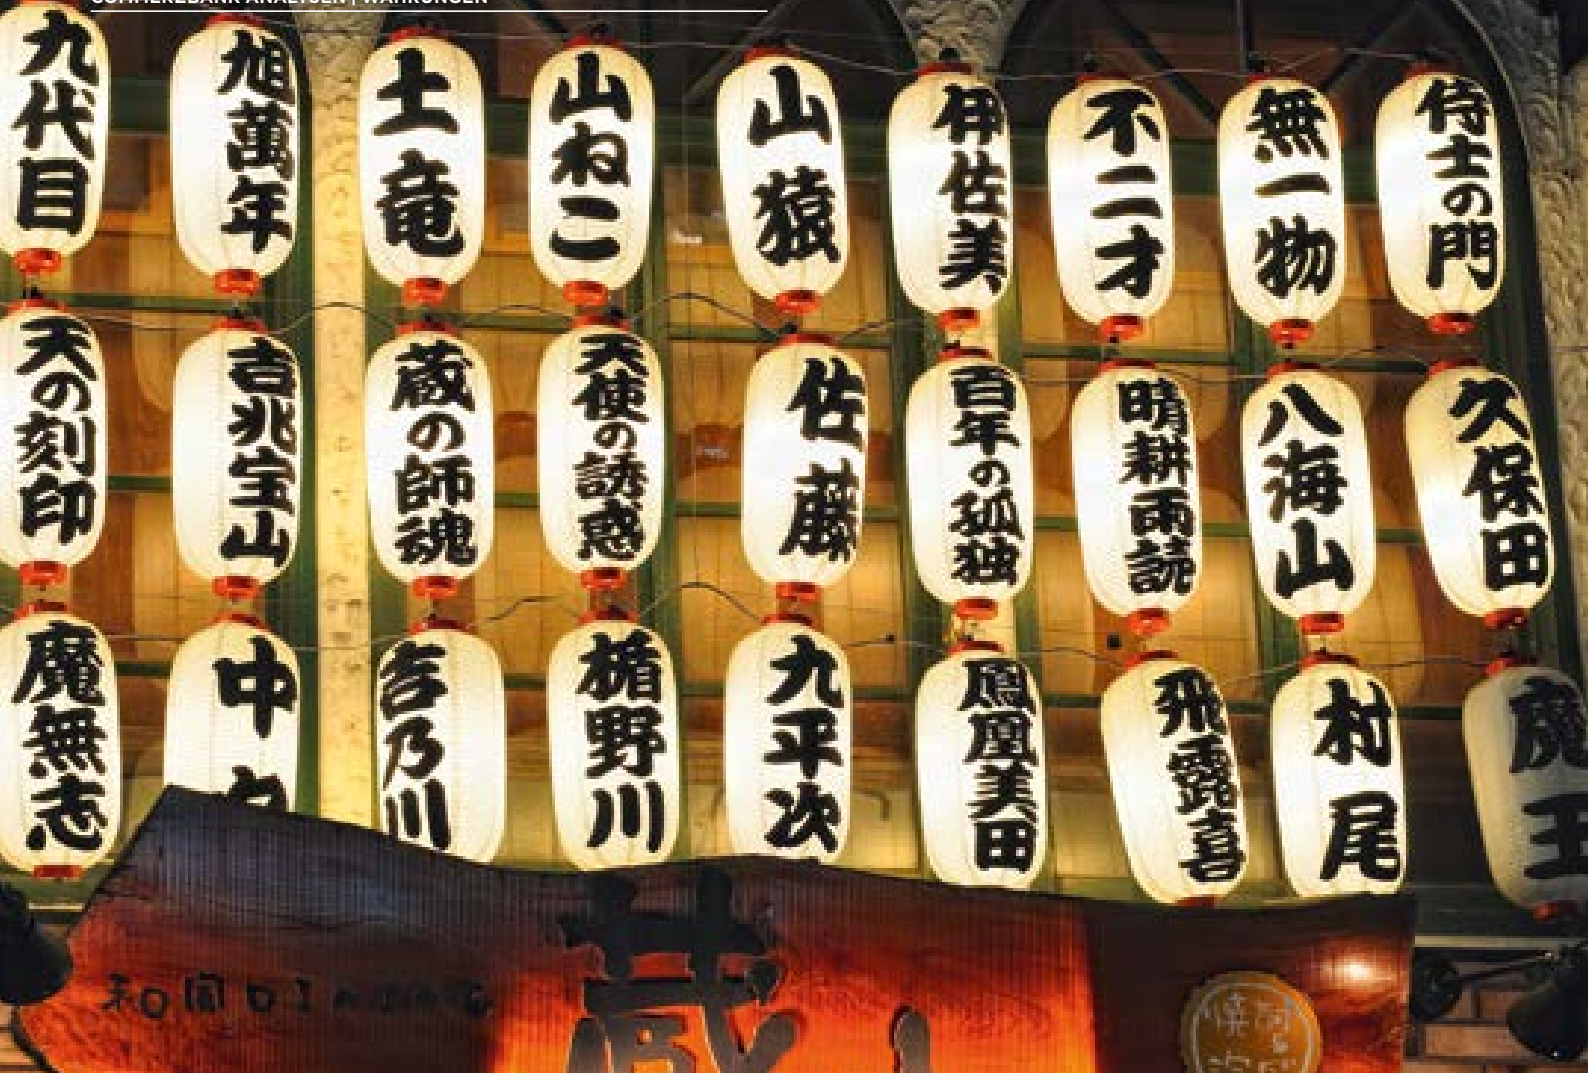 COMMERZBANK ANALYSEN | WÄHRUNGEN
九代目
旭萬年
土竜
山ねこ
山猿
伊佐美
不二才
無一物
侍士の門
天の刻印
吉兆宝山
蔵の師魂
天使の誘惑
佐藤
百年の孤独
晴耕雨読
八海山
久保田
魔無志
中々
吉乃川
楯野川
九平次
鳳凰美田
飛露喜
村尾
魔王
蔵